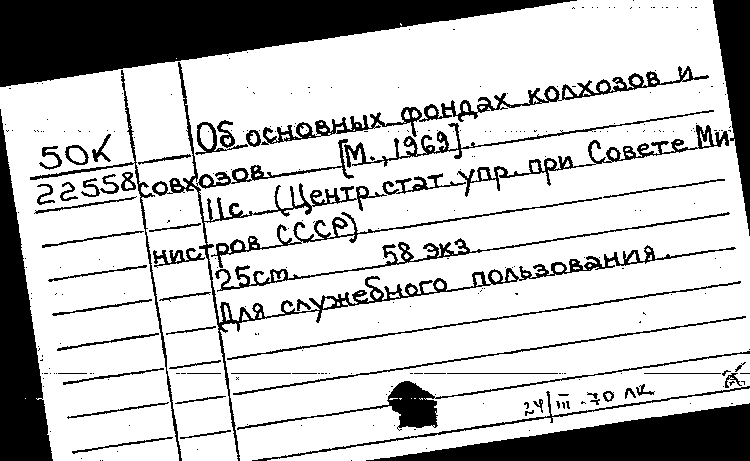 50К
22558
Об основных фондах колхозов и
совхозов. [М., 1969].
11с. (Центр. стат. упр. при Совете Ми-
нистров СССР).
25см. 58 экз.
Для служебного пользования.
24/III-70 ЛК